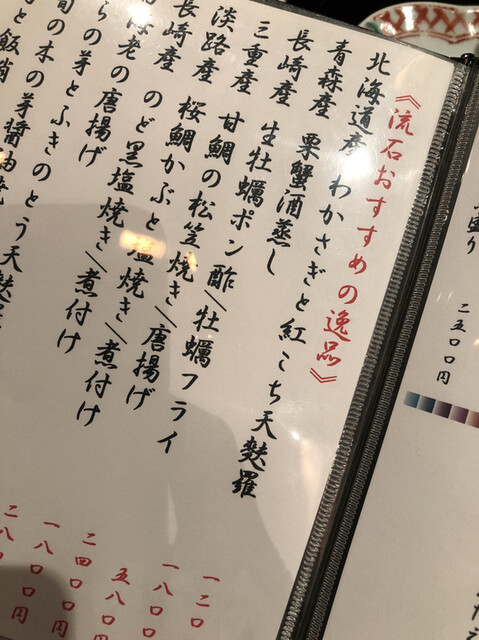 盛り
二五〇〇円
《流石おすすめの逸品》
北海道産 わかさぎと紅こち天麩羅
青森産 栗蟹酒蒸し
長崎産 生牡蠣ポン酢/牡蠣フライ
三重産 甘鯛の松笠焼き/唐揚げ
淡路産 桜鯛かぶと塩焼き/煮付け
長崎産 のど黒塩焼き/煮付け
の唐揚げ
らの芽とふきのとう天麩羅
の木の芽醤油焼
と飯蛸
一二〇
一八〇〇
五八〇
二四〇〇円
一八〇〇円
二八〇〇円